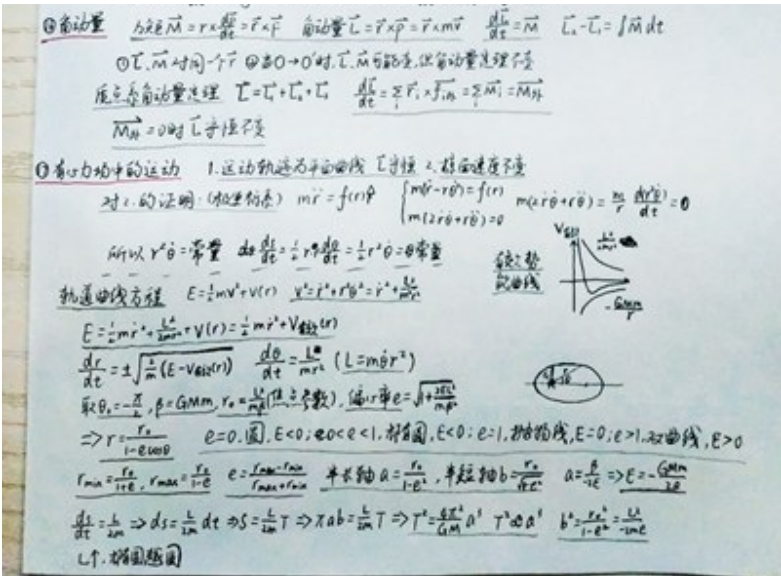 ④角动量 力矩M⃗=r×dp⃗/dt=r⃗×F⃗ 角动量L⃗=r⃗×p⃗=r⃗×mv⃗ dL⃗/dt=M⃗ L⃗₂-L⃗₁=∫M⃗dt
①L⃗、M⃗对同一个r⃗ ②当O→O'时,L⃗、M⃗可能变,但角动量定理不变
质点系角动量定理 L⃗=L⃗₁+L⃗₂+L⃗₃ dL⃗/dt=Σr⃗ᵢ×f⃗ᵢ外=ΣM⃗ᵢ=M⃗外
M⃗外=0时L⃗守恒不变
⑤有心力场中的运动 1.运动轨迹为平面曲线 L⃗守恒 2.掠面速度不变
对2.的证明:(极坐标系) mr̈=f(r)r̂ {m(r̈-rθ̇²)=f(r) m(2ṙθ̇+rθ̈)=0 m(2ṙθ̇+rθ̈)=m/r d(r²θ̇)/dt=0
所以r²θ̇=常量 ds/dt=½r²dθ/dt=½r²θ̇=常量
有效势能曲线 V有效 L²/2mr² -GMm/r
轨道曲线方程 E=½mv²+V(r) v²=ṙ²+r²θ̇²=ṙ²+L²/m²r²
E=½mṙ²+L²/2mr²+V(r)=½mṙ²+V有效(r)
dr/dt=±√(2/m(E-V有效(r))) dθ/dt=L/mr² (L=mθ̇r²)
取θ₀=-π/2, β=GMm, r₀=L²/mβ(焦点参数), 偏心率e=√(1+2EL²/mβ²)
⇒r=r₀/(1-ecosθ) e=0,圆,E<0;0<e<1,椭圆,E<0;e=1,抛物线,E=0;e>1,双曲线,E>0
rmin=r₀/(1+e), rmax=r₀/(1-e) e=(rmax-rmin)/(rmax+rmin) 半长轴a=r₀/(1-e²),半短轴b=r₀/√(1-e²) a=β/-2E ⇒E=-GMm/2a
ds/dt=L/2m ⇒ds=L/2m dt ⇒S=L/2m T ⇒πab=L/2m T ⇒T²=4π²/GM a³ T²∝a³ b²=r₀²/(1-e²)=L²/-2mE
L↑,椭圆趋圆